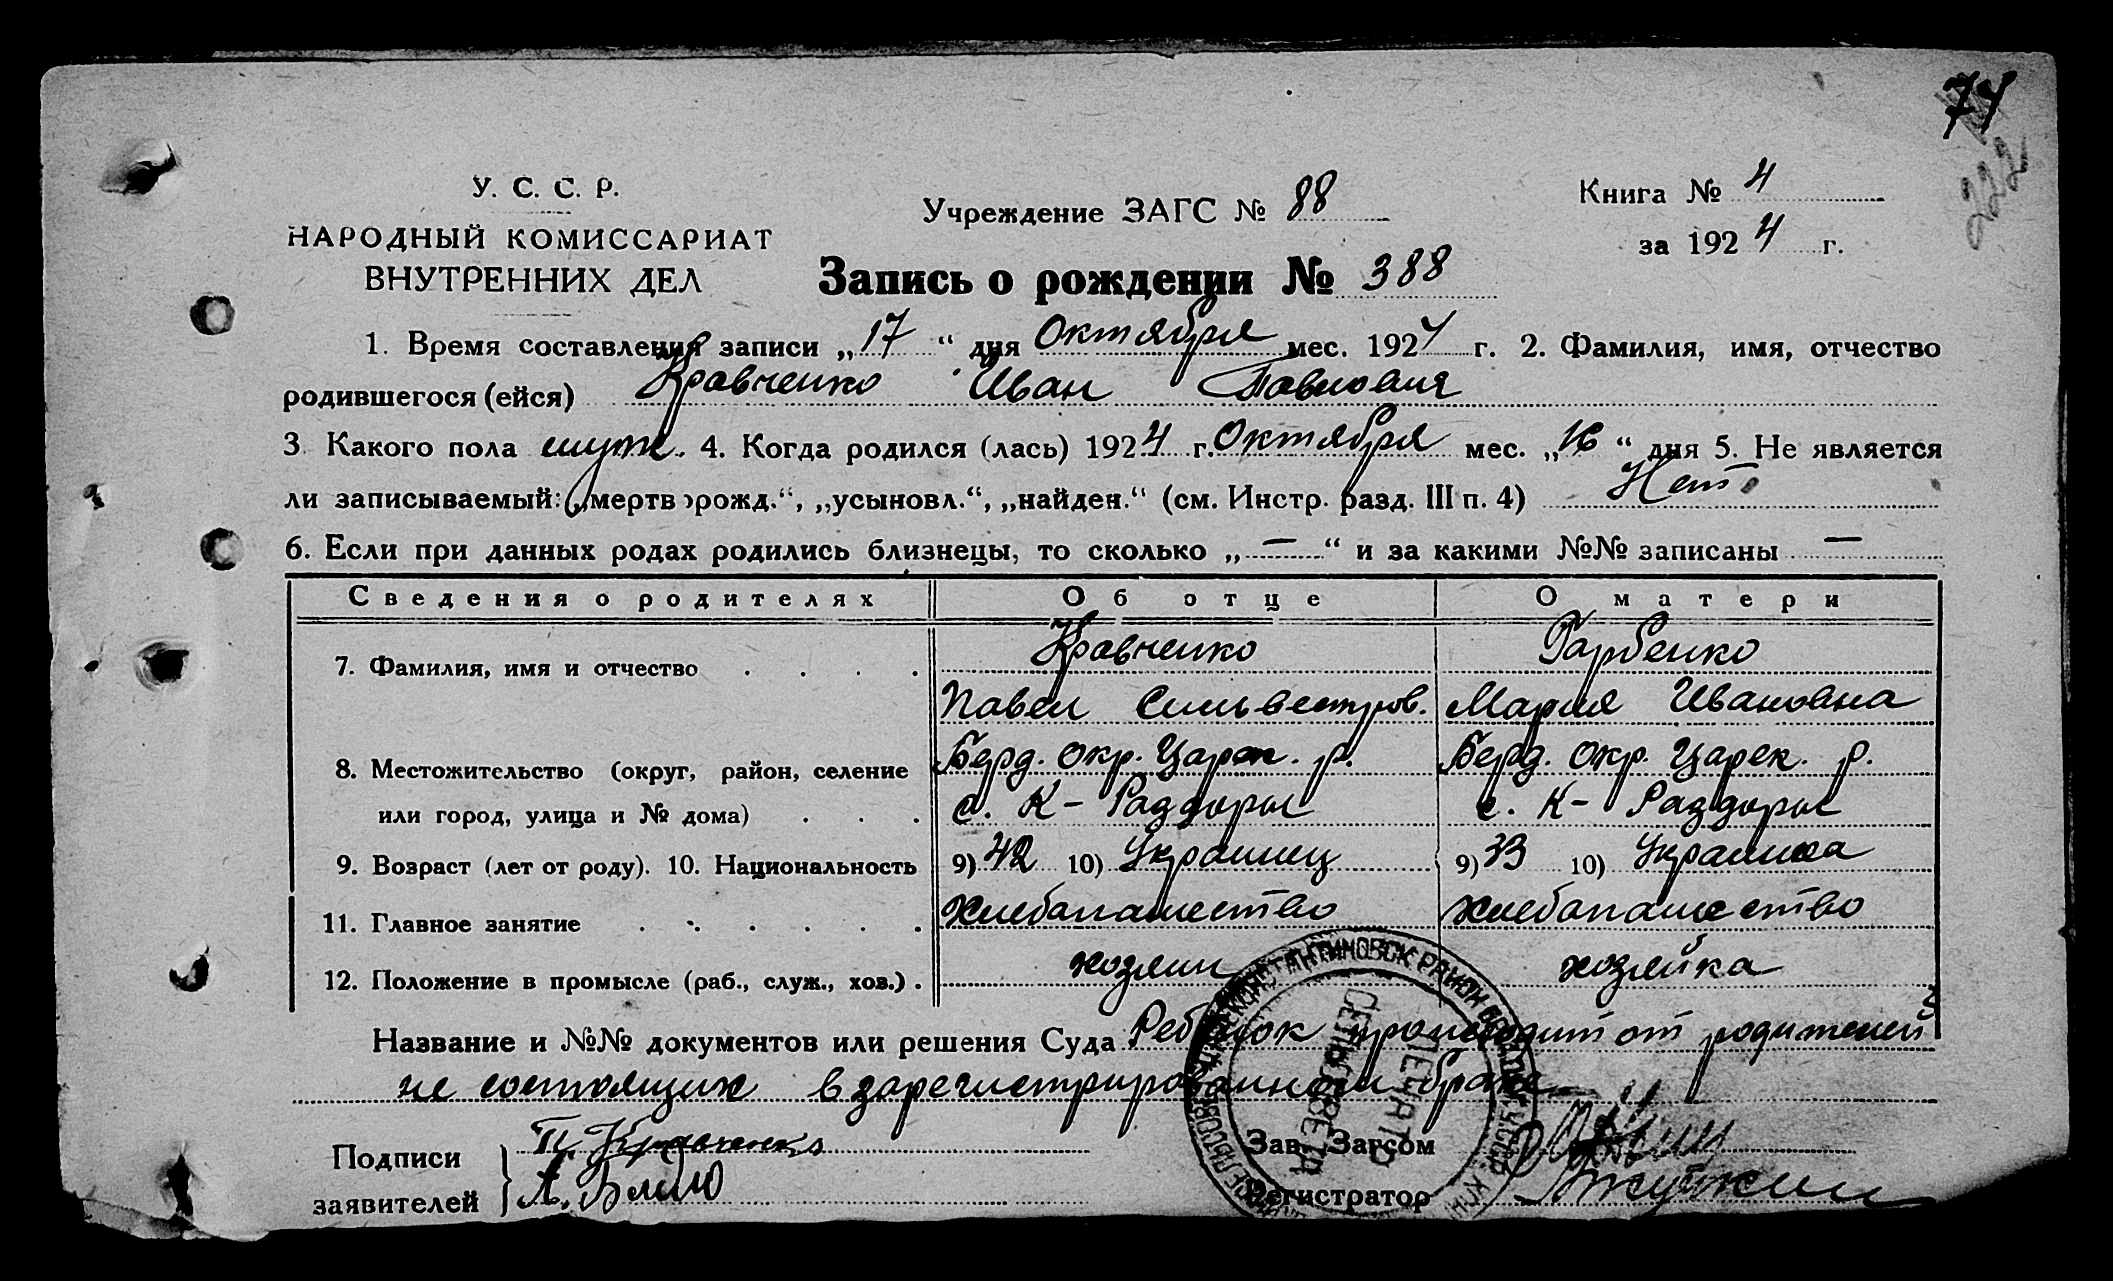 74
222
У. С. С. Р.
НАРОДНЫЙ КОМИССАРИАТ
ВНУТРЕННИХ ДЕЛ
Учреждение ЗАГС № 88
Книга № 4
за 1924 г.
Запись о рождении № 388
1. Время составления записи „17“ дня Октября мес. 1924 г. 2. Фамилия, имя, отчество
родившегося (ейся) Кравченко Иван Павлович
3 Какого пола муж. 4. Когда родился (лась) 1924 г. Октября мес. „16“ дня 5. Не является
ли записываемый: „мертворожд.“, „усыновл.“, „найден.“ (см. Инстр. разд. III п. 4) Нет
6. Если при данных родах родились близнецы, то сколько „—“ и за какими №№ записаны —
Сведения о родителях Об отце О матери
7. Фамилия, имя и отчество Кравченко Гарбенко
Павел Сильвестров. Мария Ивановна
8. Местожительство (округ, район, селение Берд. окр. Царек. р. Берд. окр. Царек. р.
или город, улица и № дома) с. К-Раздоры с. К-Раздоры
9. Возраст (лет от роду). 10. Национальность 9) 42 10) Украинец 9) 33 10) Украинка
11. Главное занятие Хлебопашество Хлебопашество
12. Положение в промысле (раб., служ., хоз.) хозяин хозяйка
Название и №№ документов или решения Суда Ребенок происходит от родителей
не состоящих в зарегистрированном браке
Подписи П. Кравченко
заявителей
Зав. Загсом
Регистратор
ПЕЧАТЬ
СЕЛЬСОВЕТА